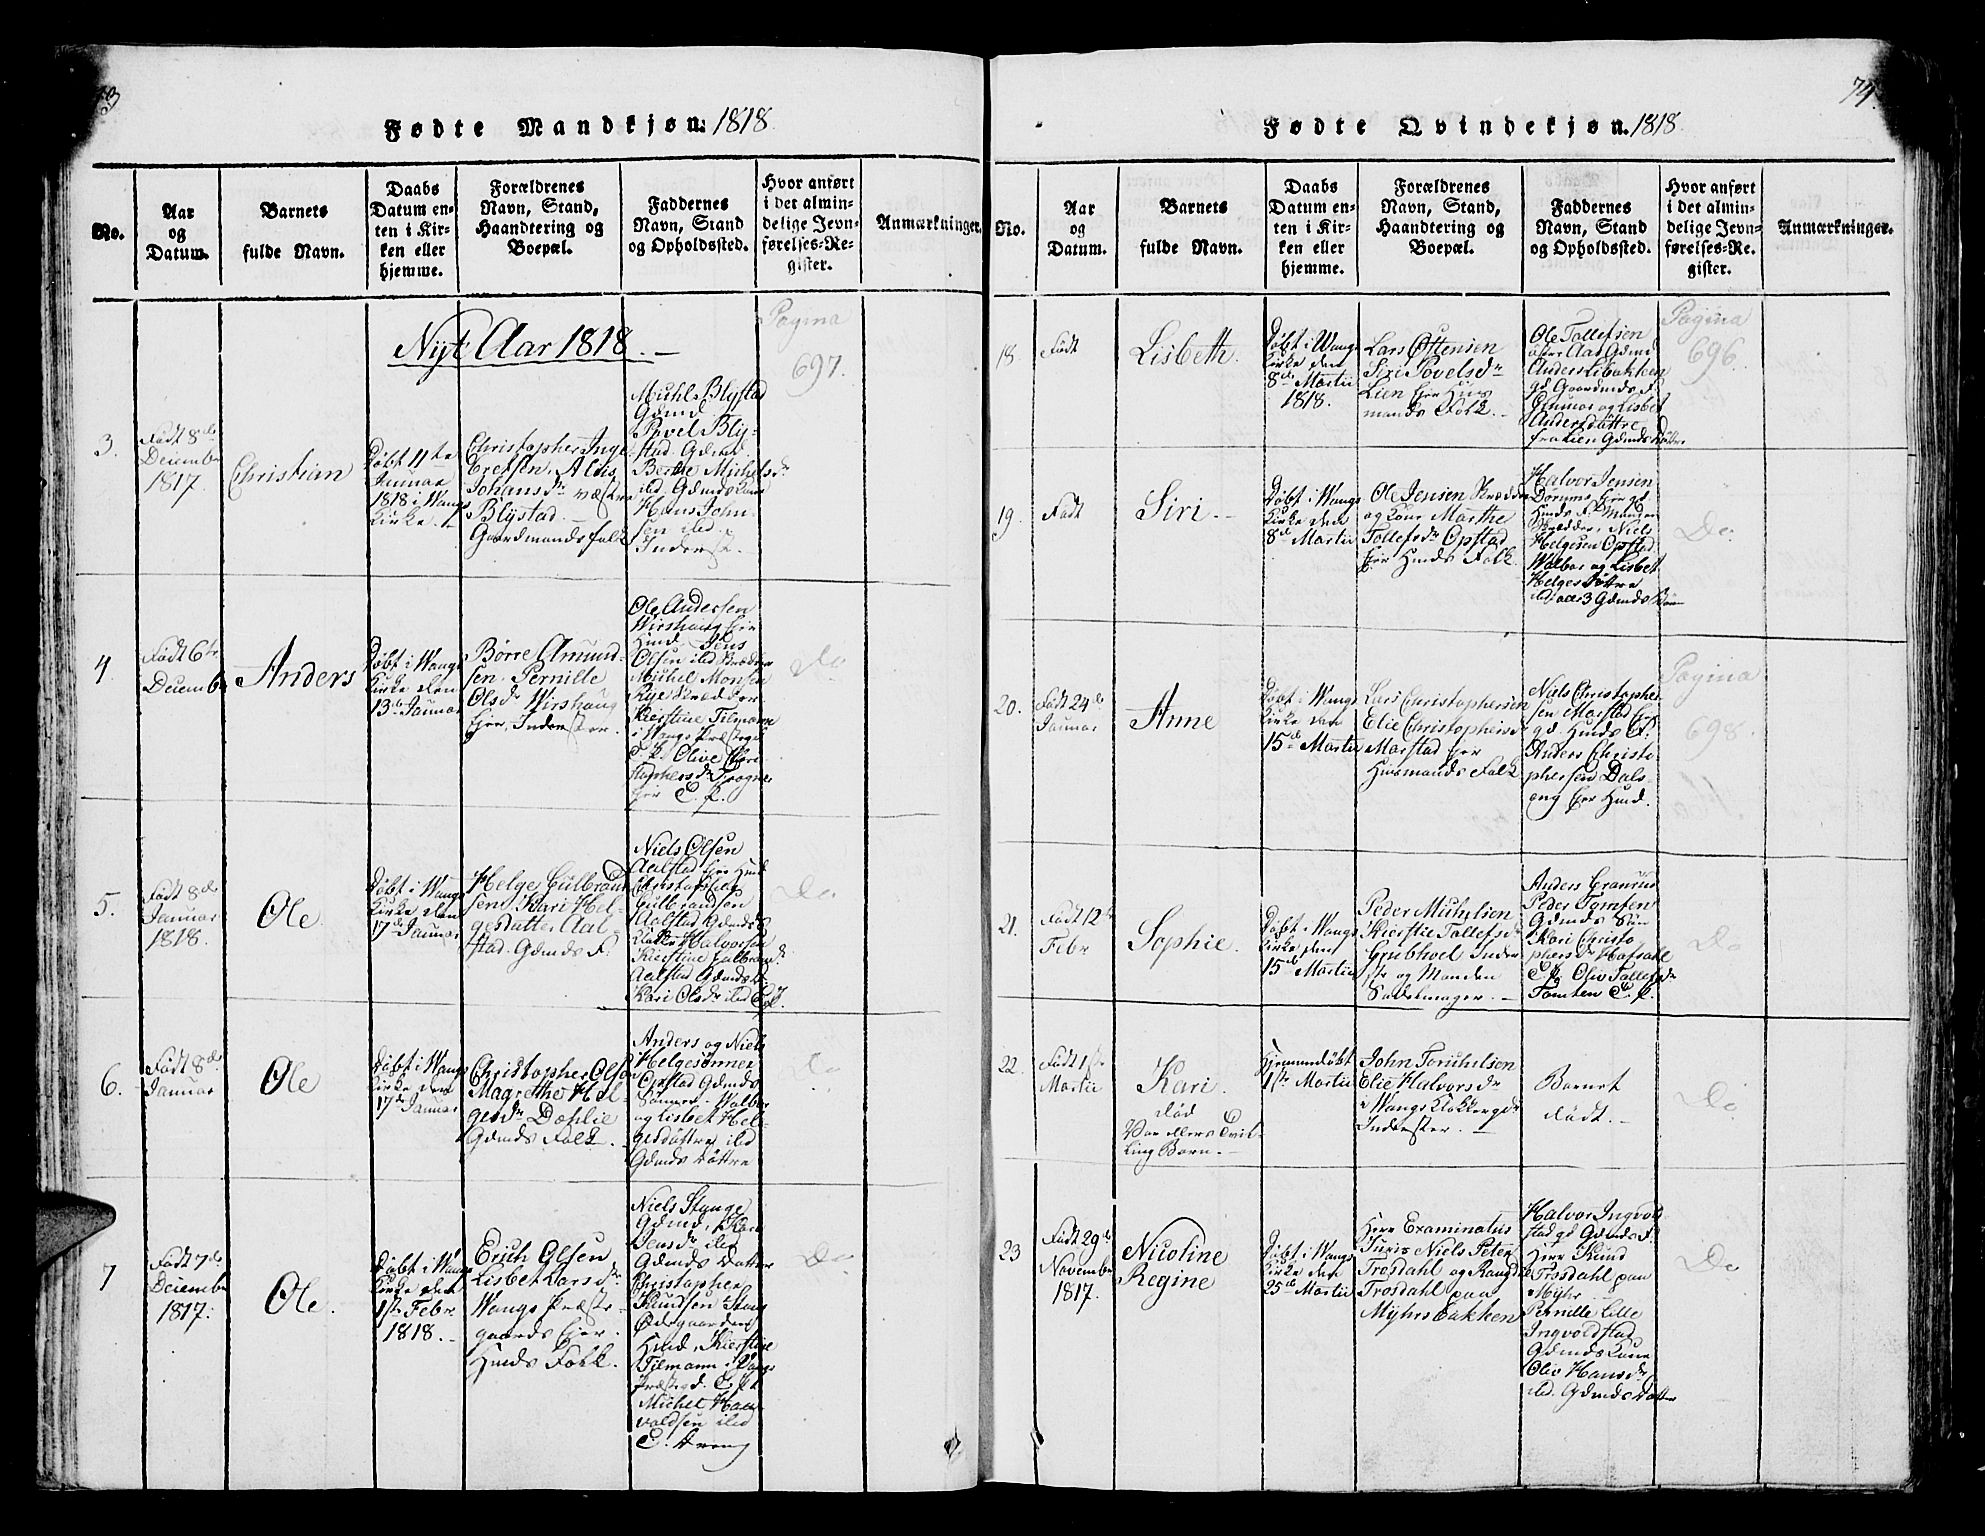 73
Fødte Mandkjøn: 1818.
No.
Aar
og
Datum.
Barnets
fulde Navn.
Daabs
Datum en-
ten i Kir-
ken eller
hjemme.
Forældrenes
Navn, Stand,
Haandtering og
Boepæl.
Faddernes
Navn, Stand
og Opholdssted.
Hvor anført
i det almin-
delige Jevn-
førelses-Re-
gister.
Anmærkninger.
Nyt Aar 1818.
3.
Født 8de
Decembr
1817.
Christian
Døbt 11te
Januar
1818 i Wangs
Kirke.
Christopher Inge-
Johansdr
Blystad
Gaardmandsfolk
Michel Blystad
Gdmd
Povel Bly-
stad. Gdmd.
Berthe Michelsdr
ibid Gdmds Kone
Hans John-
sen ibid.
Inderst.
Pagina
697.
4.
Født 6te
Decembr
Anders
Døbt i Wangs
Kirke den
13de Januar
Børre Amund-
sen. Pernille
Olsdr Wirshaug
Eier, Inderster.
Ole Andersen
Wirshaug Eier
Husmd. Jens
Olsen ibid Skrædder
Michel Monsen
Rye Skrædder
Kierstine Tilmann
i Wangs Præstegd
E. P. Olive Chri-
stophersdr Frogner
Eier E. P.
Do
5.
Født 8de
Januar
1818.
Ole
Døbt i Wangs
Kirke den
17de Januar
Helge Gulbrand-
sen, Kari Hel-
gesdatter Aal-
stad. Gdmds F.
Niels Olsen
Aalstad Eier Husmd
Christopher
Gulbrandsen
Aalstad Gdmds S
Halvorsen
Kierstine Gulbrandsdr
Aalstad Gdmds D.
Kari Olsdr ibid E. P.
Do
6.
Født 8de
Januar
Ole
Døbt i Wangs
Kirke den
17de Januar
Christopher Olsen
Magrethe Hel-
gesdr Dahlie
Gdmds Folk.
Anders og Niels
Helgesønner
Opstad Gdmds
Sønner. Walbor
og Lisbet Hel-
gesdøttre ibid
Gdmds Døttre
Do
7
Født 7de
Decembr
1817.
Ole.
Døbt i Wangs
Kirke den
1ste Febr
1818.
Erich Olsen
Lisbet Larsdr
Wangs Præste-
gaards Eier
Husmds Folk.
Niels Stange
Gdmd, Kari
Jensdr ibid
Gdmds Datter
Christopher
Knudsen Stang
Ødegaarden
Husmd, Kierstine
Tilmann i Wangs
Præstegd. E. P.
Michel Haa-
voldsen ibid
E. Dreng
Do
74.
Fødte Qvindekjøn. 1818.
No.
Aar
og
Datum.
Barnets
fulde Navn.
Daabs
Datum en-
ten i Kir-
ken eller
hjemme.
Forældrenes
Navn, Stand,
Haandtering og
Boepæl.
Faddernes
Navn, Stand
og Opholdssted.
Hvor anført
i det almin-
delige Jevn-
førelses-Re-
gister.
Anmærkninger.
18.
Født
Lisbeth.
Døbt i Wangs
Kirke den
8de Martii
1818.
Lars Ottensen
Siri Povelsdr
Lien Eier Huus-
mands Folk.
Ole Tollefsen
øfre Aas Gdmd
Anders Libakken
gd Gaardmds F.
Gunnor og Lisbet
Andersdøttre
fra Lien Gdmds Døttre
Pagina
696.
19.
Født
Siri.
Døbt i Wangs
Kirke den
8de Martii
Ole Jensen Skrædder
og Kone Marthe
Tollefsdr Opstad
Eier Husmds Folk.
Halvor Jensen
Dorum Eier gd
Husmds F. Manden
Skrædder, Niels
Helgesen Opstad
Walbor og Lisbet
Helgesdøttre
ibid alle 3 Gdmds Børn
Do.
20.
Født 24de
Januar
Anne
Døbt i Wangs
Kirke den
15de Martii
Lars Christophersen
Elie Christophersdr
Marstad Eier
Husmands Folk
Niels Christopher-
sen Marstad Eier
gd. Husmds F.
Anders Christo-
phersen Dals-
eng Eier Husmd.
Pagina
698.
21.
Født 12te
Febr
Sophie.
Døbt i Wangs
Kirke den
15de Martii
Peder Michelsen
Kierstie Tollefsdr
Grubhoel Inder-
str og Manden
Sadelmager.
Anders Granrud
Peder Tomsen
Gdmds Søn
Kari Christo-
phersdr Hafsahl
E. P. Oliv Tollefsdr
Tomten E. P.
Do
22.
Født 1ste
Martii
Kari.
død
Var ellers Tvil-
ling Barn.
Hjemmedøbt
1ste Martii
John Torichelsen
Elie Halvorsdr
i Wangs Klokkergd
Inderster.
Barnet
dødt.
Do
23
Født 29de
Novembr
1817.
Nicoline
Regine
Døbt i Wangs
Kirke den
25de Martii
Herr Examinatus
Juris Niels Peter
Trosdahl og Rangdi
Trosdahl paa
Myhrs Eakken
Halvor Ingvold-
stad gd Gdmds F.
Herr Knud
Trosdahl paa
Myhr
Pernille Lille
Ingvoldstad
Gdmds Kone
Oliv Hansdr
ibid. Gdmds Datter
Do